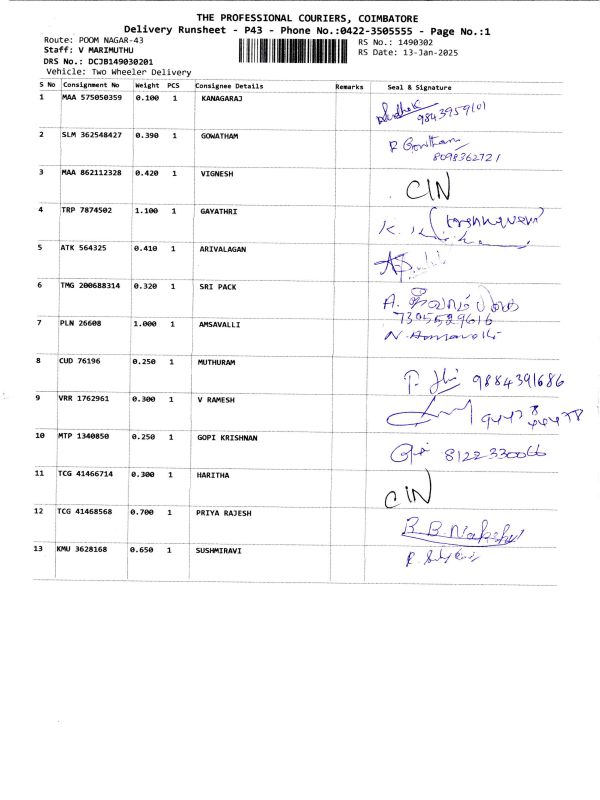 THE PROFESSIONAL COURIERS, COIMBATORE
Delivery Runsheet - P43 - Phone No.:0422-3505555 - Page No.:1
Route: POOM NAGAR-43 RS No.: 1490302
Staff: V MARIMUTHU RS Date: 13-Jan-2025
DRS No.: DCJB149030201
Vehicle: Two Wheeler Delivery
S No Consignment No Weight PCS Consignee Details Remarks Seal & Signature
1 MAA 575050359 0.100 1 KANAGARAJ
9843959101
2 SLM 362548427 0.390 1 GOWATHAM R Gowtham
8098362721
3 MAA 862112328 0.420 1 VIGNESH CIN
4 TRP 7874502 1.100 1 GAYATHRI
5 ATK 564325 0.410 1 ARIVALAGAN
6 TMG 200688314 0.320 1 SRI PACK A.
7395529616
7 PLN 26608 1.000 1 AMSAVALLI
8 CUD 76196 0.250 1 MUTHURAM 9884391686
9 VRR 1762961 0.300 1 V RAMESH
10 MTP 1340850 0.250 1 GOPI KRISHNAN 8122330066
11 TCG 41466714 0.300 1 HARITHA CIN
12 TCG 41468568 0.700 1 PRIYA RAJESH
13 KMU 3628168 0.650 1 SUSHMIRAVI